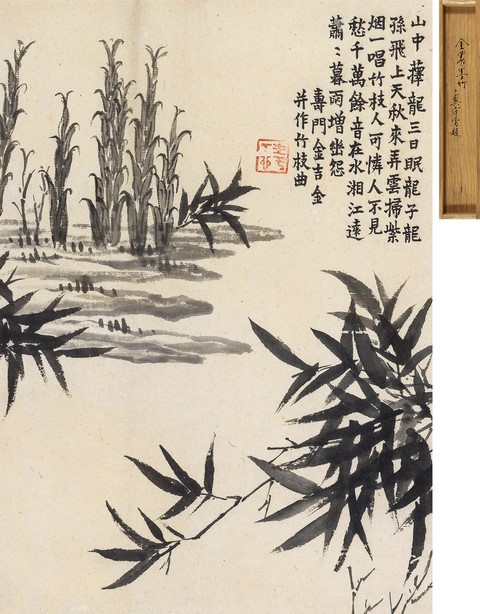 山中蘀龍三日眠龍子龍
孫飛上天秋來弄雲掃紫
烟一唱竹枝人可憐人不見
愁千萬餘音在水湘江遠
蕭〻暮雨增幽怨
壽門金吉金
并作竹枝曲
金農墨竹